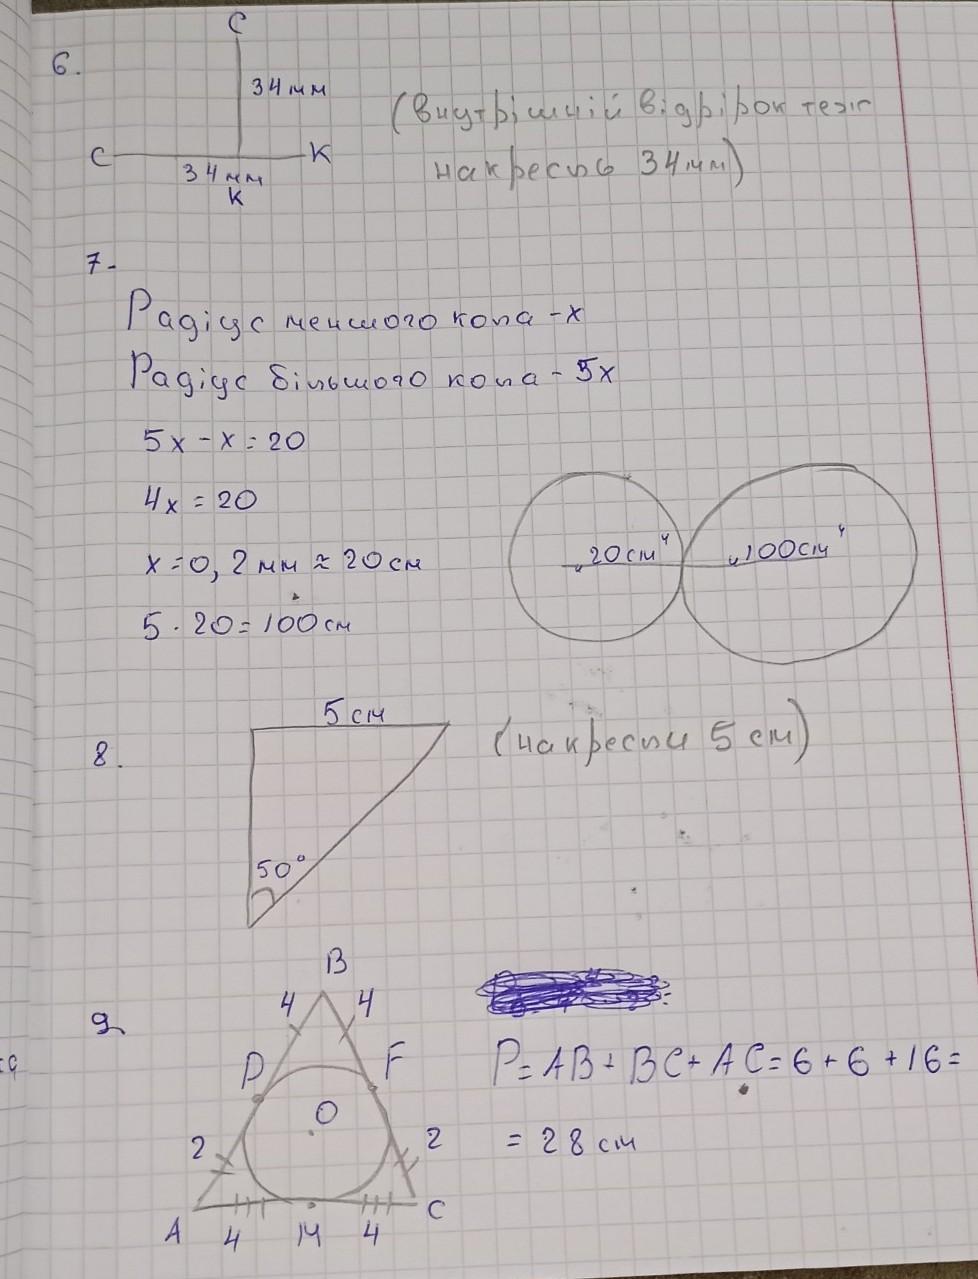 6.
C
34мм
C
K
34мм
K
(внутрішній відрізок теж
накресль 34мм)
7-
Радіус меншого кола - x
Радіус більшого кола - 5x
5x - x = 20
4x = 20
x = 0,2 мм ≈ 20 см
5 · 20 = 100 см
„20см“
„100см“
8.
5 см
(накресли 5 см)
50°
9
B
4 4
D F
O
2 2
A C
4 M 4
P = AB + BC + AC = 6 + 6 + 16 =
= 28 см